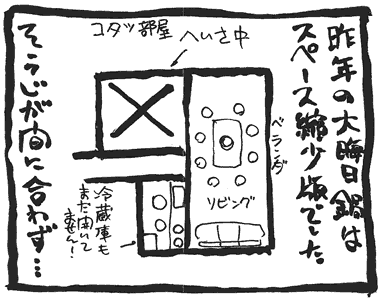 昨年の大晦日鍋は
スペース縮少版でした。
コタツ部屋
へいさ中
ベランダ
リビング
冷蔵庫も
まだ開いて
ません!
そうじが間に合わず…